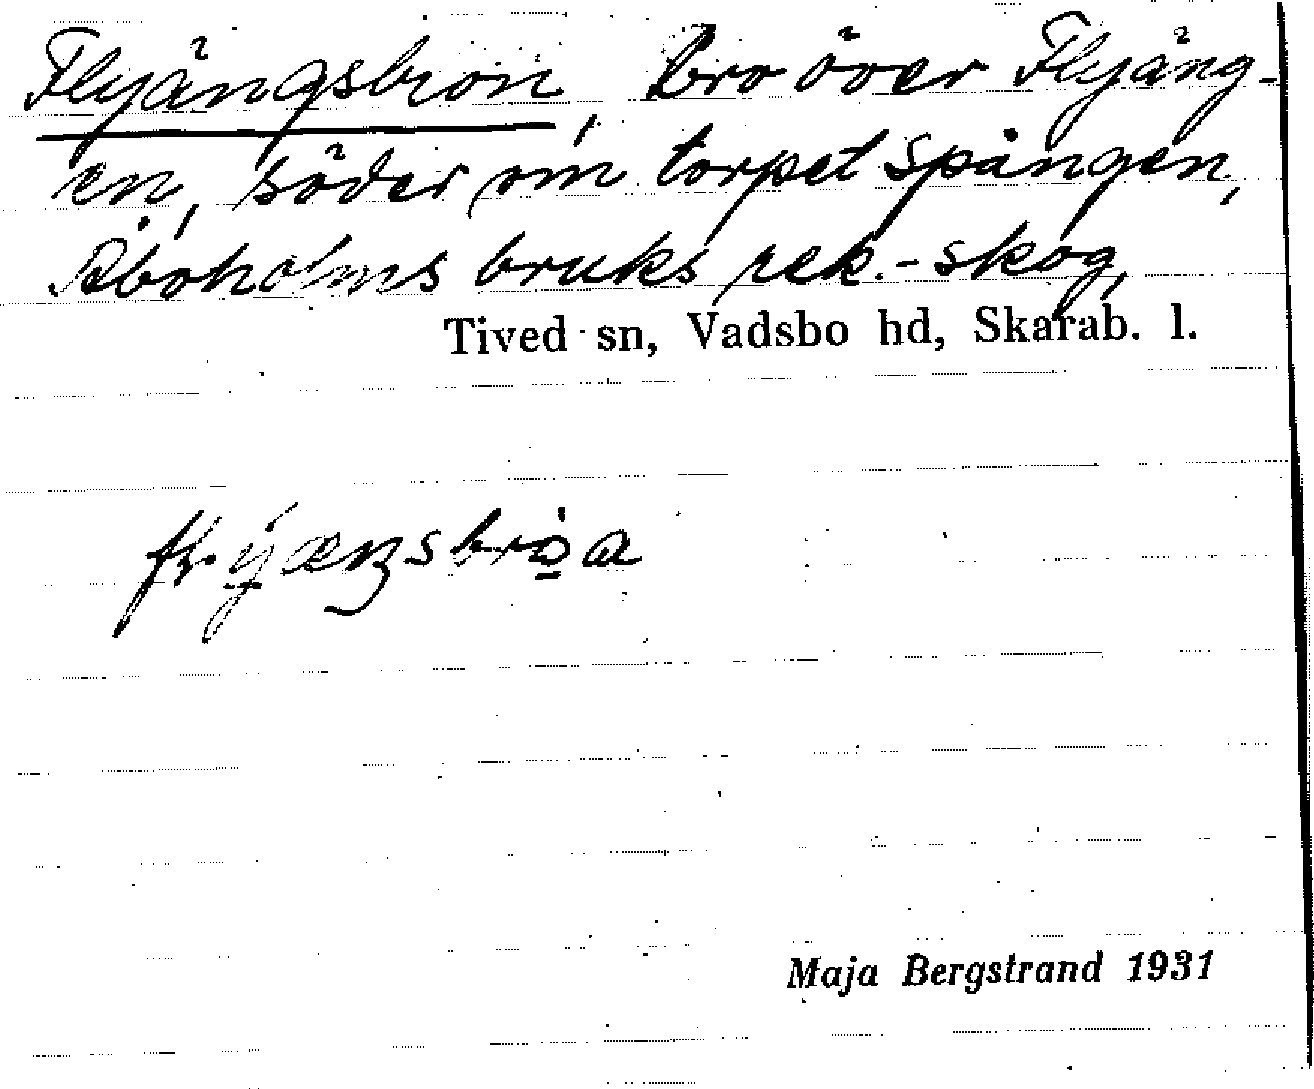 Flyängsbron, bro över Flyäng-
en, söder om torpet Spången,
Aboholms bruks rek.-skog,
Tived sn, Vadsbo hd, Skarab. l.
Maja Bergstrand 1931